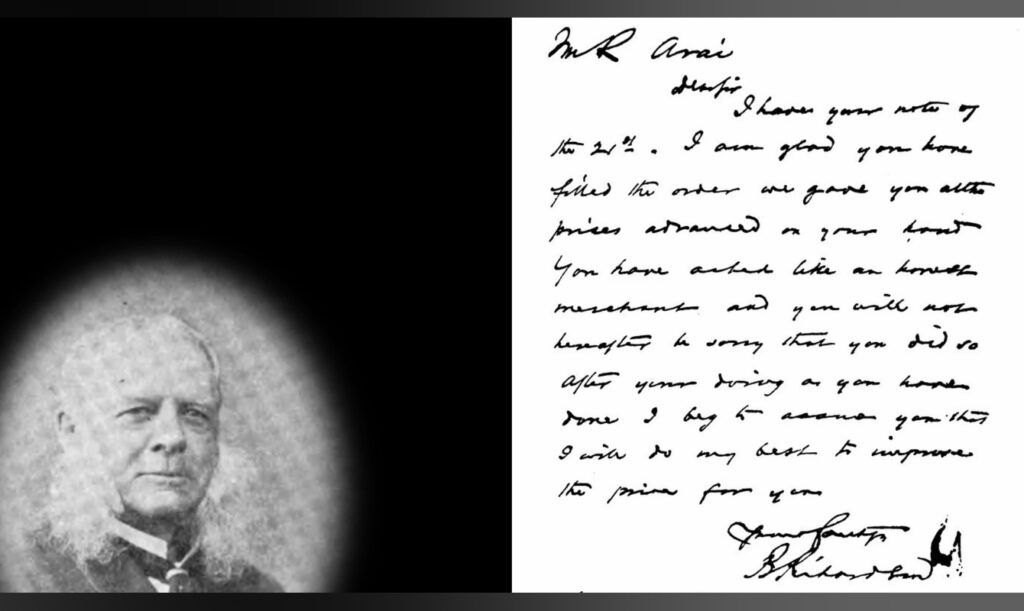 Mr Arai
Dear sir
I have your note of
the 21st. I am glad you have
filled the order we gave you altho
prices advanced on your hand
You have acted like an honest
merchant and you will not
hereafter be sorry that you did so
after your doing as you have
done I beg to assure you that
I will do my best to improve
the price for you
Yours Truly
B Richardson